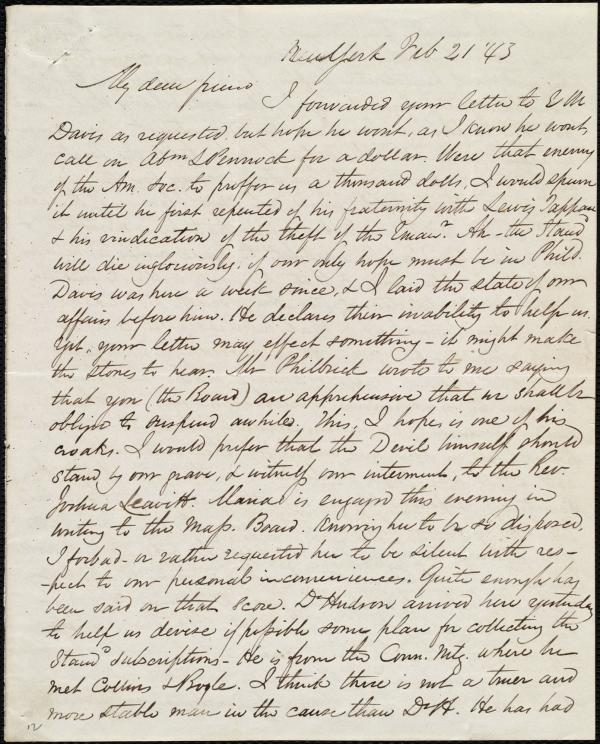 New York Feb 21 '43
My dear friend
I forwarded your letter to E M
Davis as requested, but hope he wont, as I know he wont,
call on Abm L Pennock for a dollar. Were that enemy
of the Am. Soc. to proffer us a thousand dolls, I would spurn
it until he first repented of his fraternity with Lewis Tappan
& his vindication of the theft of the Emanr. Ah - the Standd
will die ingloriously, if our only hope must be in Phild.
Davis was here a week since, & I laid the state of our
affairs before him. He declares their inability to help us.
Yet, your letter may effect something - it might make
the stones to hear. Mr Philbrick wrote to me saying
that you (the Board) are apprehensive that we shall be
obliged to suspend awhile. This, I hope is one of his
croaks. I would prefer that the Devil himself should
stand by our grave, & witness our interment, to the Rev.
Joshua Leavitt. Maria is engaged this evening in
writing to the Mass. Board. Knowing her to be so disposed,
I forbad - or rather requested her to be silent with res-
-pect to our personal inconveniences. Quite enough has
been said on that score. Dr Hudson arrived here yesterday
to help us devise if possible some plan for collecting the
Standd subscriptions - He is from the Conn. Mtg. where he
met Collins & Bogle. I think there is not a truer and
more stable man in the cause than Dr H. He has had
12